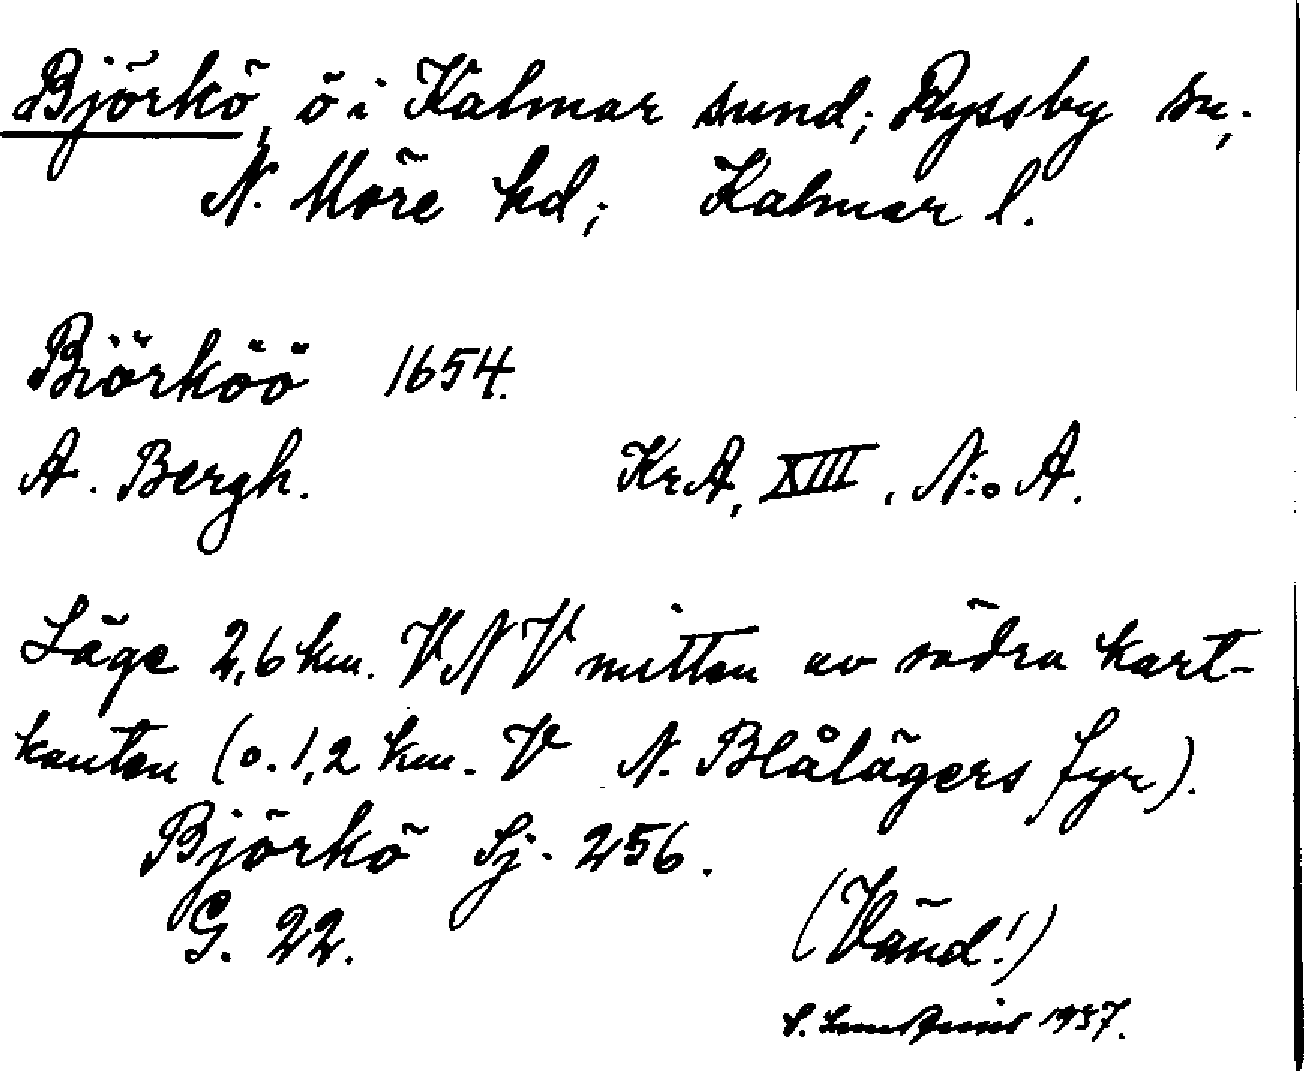 Björkö, ö i Kalmar sund; Ryssby sn;
N. Möre hd; Kalmar l.
Biörköö 1654.
A. Bergh. KrA, XIII, N:o A.
Läge 2,6 km. VNV mitten av södra kart-
kanten (o. 1,2 km. V N. Blålägers fyr).
Björkö Sj. 256.
G. 22.
(Vänd!)
1937.